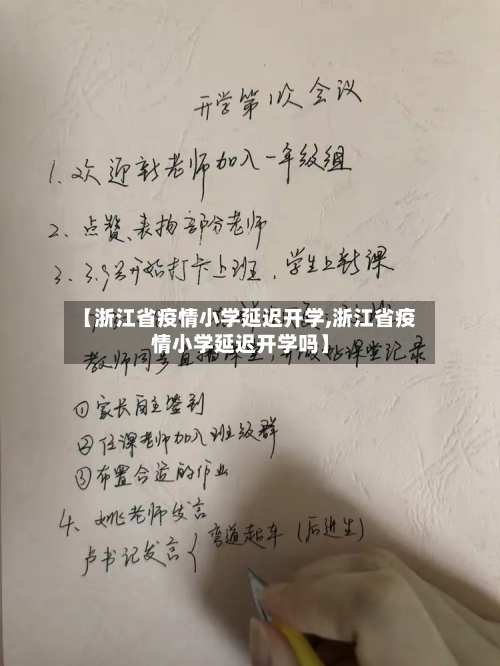 开学第1次会议
1、欢迎新老师加入一年级组
2、点赞、表扬部分老师
3、3.9号开始打卡上班，学生上新课
【浙江省疫情小学延迟开学,浙江省疫
情小学延迟开学吗】
教师同步直播课堂
课堂记录
①家长自主签到
②任课老师加入班级群
③布置合适的作业
4、姚老师发言
卢书记发言{弯道超车（后进生）